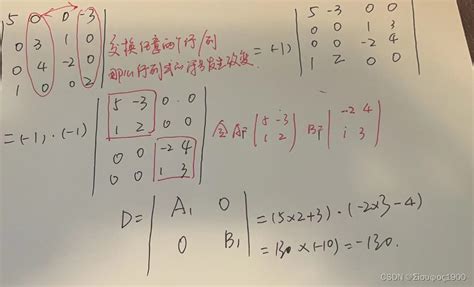 5 0 0 -3
0 3 1 0
0 4 -2 0
1 0 0 2
交换任意两个行/列
那么行列式的符号发生改变
=(-1)
5 -3 0 0
0 0 1 3
0 0 -2 4
1 2 0 0
=(-1)·(-1)
5 -3 0 0
1 2 0 0
0 0 -2 4
0 0 1 3
全A下 5 -3 B下 -2 4
1 2 1 3
D= A₁ 0 =(5×2+3)·(-2×3-4)
0 B₁ =130×(-10)=-130.
CSDN @Σίσυφος1900